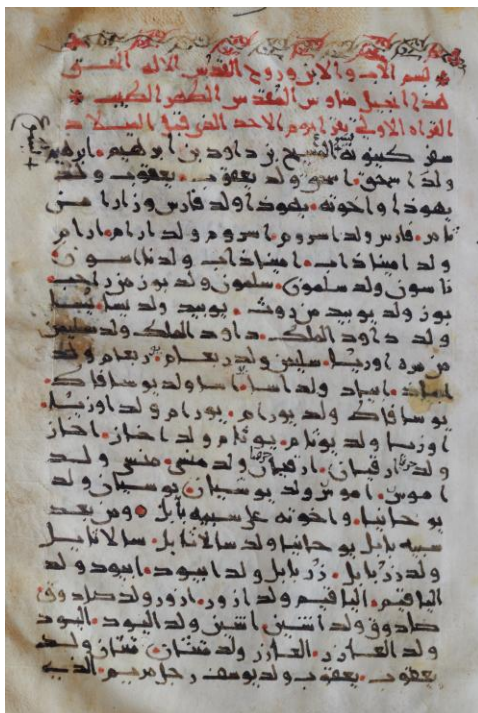 بسم الاب والابن وروح القدس الاله
هذا انجيل متاوس المقدس الطهر الطيب
القراه الاولى يقرا يوم الاحد الذي قبل الميلاد
سفر كينونه المسيح بن داود بن ابرهيم • ابرهيم
ولد اسحق • اسحق ولد يعقوب • يعقوب ولد
يهوذا واخوته • يهوذا ولد فارس وزارا من
تامر • فارس ولد اسروم • اسروم ولد ارام • ارام
ولد اميناذاب • اميناذاب ولد ناسون •
ناسون ولد سلمون • سلمون ولد بوز من راحب •
بوز ولد يوبيد من روث • يوبيد ولد يسا • يسا
ولد داود الملك • داود الملك ولد سليمن
من مره اوريا • سليمن ولد ربعام • ربعام ولد
ابياد • ابياد ولد اسا • اسا ولد يوسافاط •
يوسافاط ولد يورام • يورام ولد اوزيا •
اوزيا ولد يوثام • يوثام ولد احاز • احاز
ولد • ولد منسى • منسى ولد
اموس • اموس ولد يوسيان • يوسيان ولد
يوحانيا واخوته على سبيه بابل • ومن بعد
سبيه بابل يوحانيا ولد سالاتايل • سالاتايل
ولد زربابل • زربابل ولد ابيود • ابيود ولد
الياقيم • الياقيم ولد ازور • ازور ولد صادوق •
صادوق ولد اشين • اشين ولد اليود • اليود
ولد العازر • العازر ولد متثان • متثان ولد
يعقوب • يعقوب ولد يوسف رجل مريم • الذي